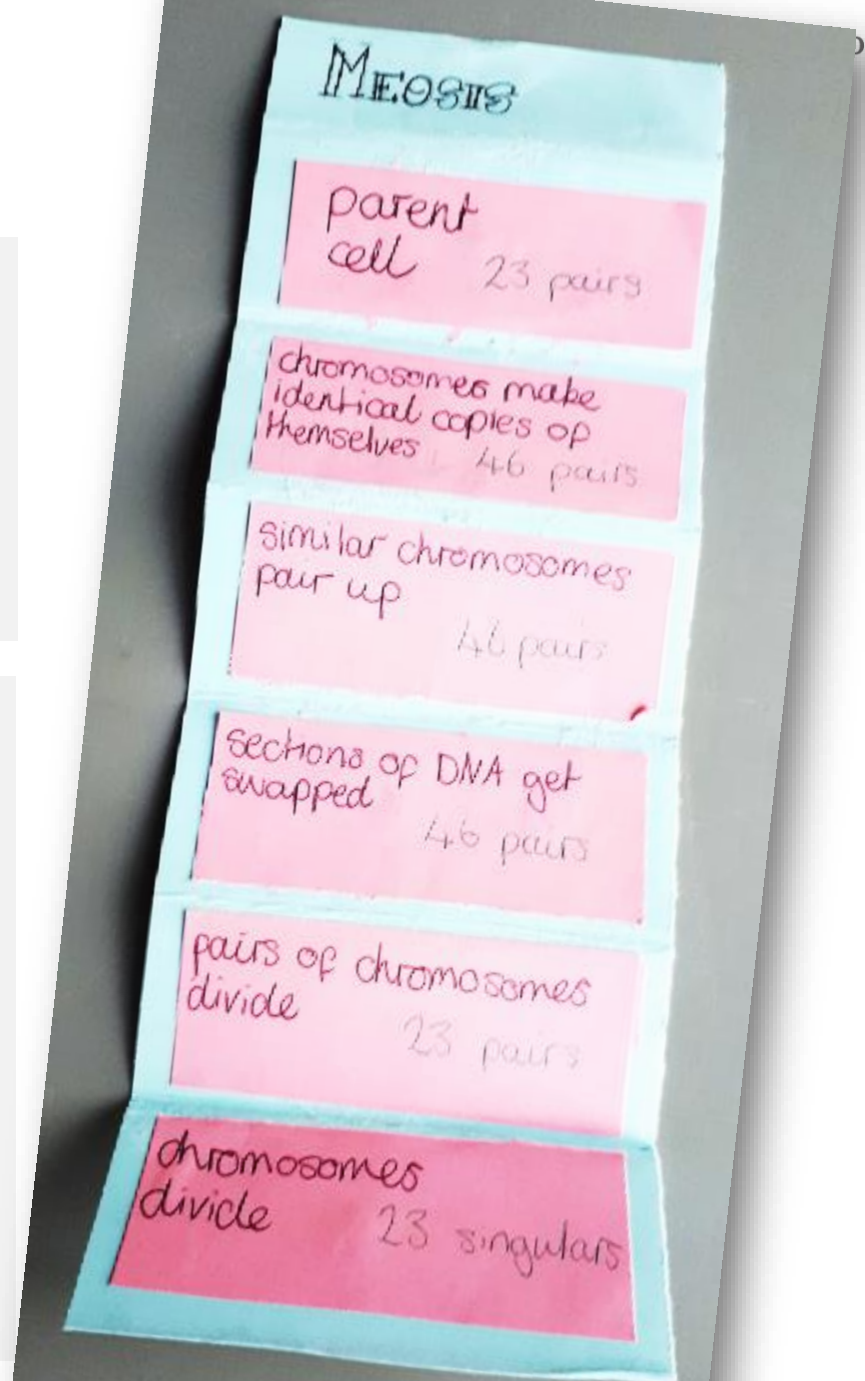 MEOSIS
parent
cell 23 pairs
chromosomes make
identical copies of
themselves 46 pairs
similar chromosomes
pair up
46 pairs
sections of DNA get
swapped
46 pairs
pairs of chromosomes
divide
23 pairs
chromosomes
divide 23 singulars